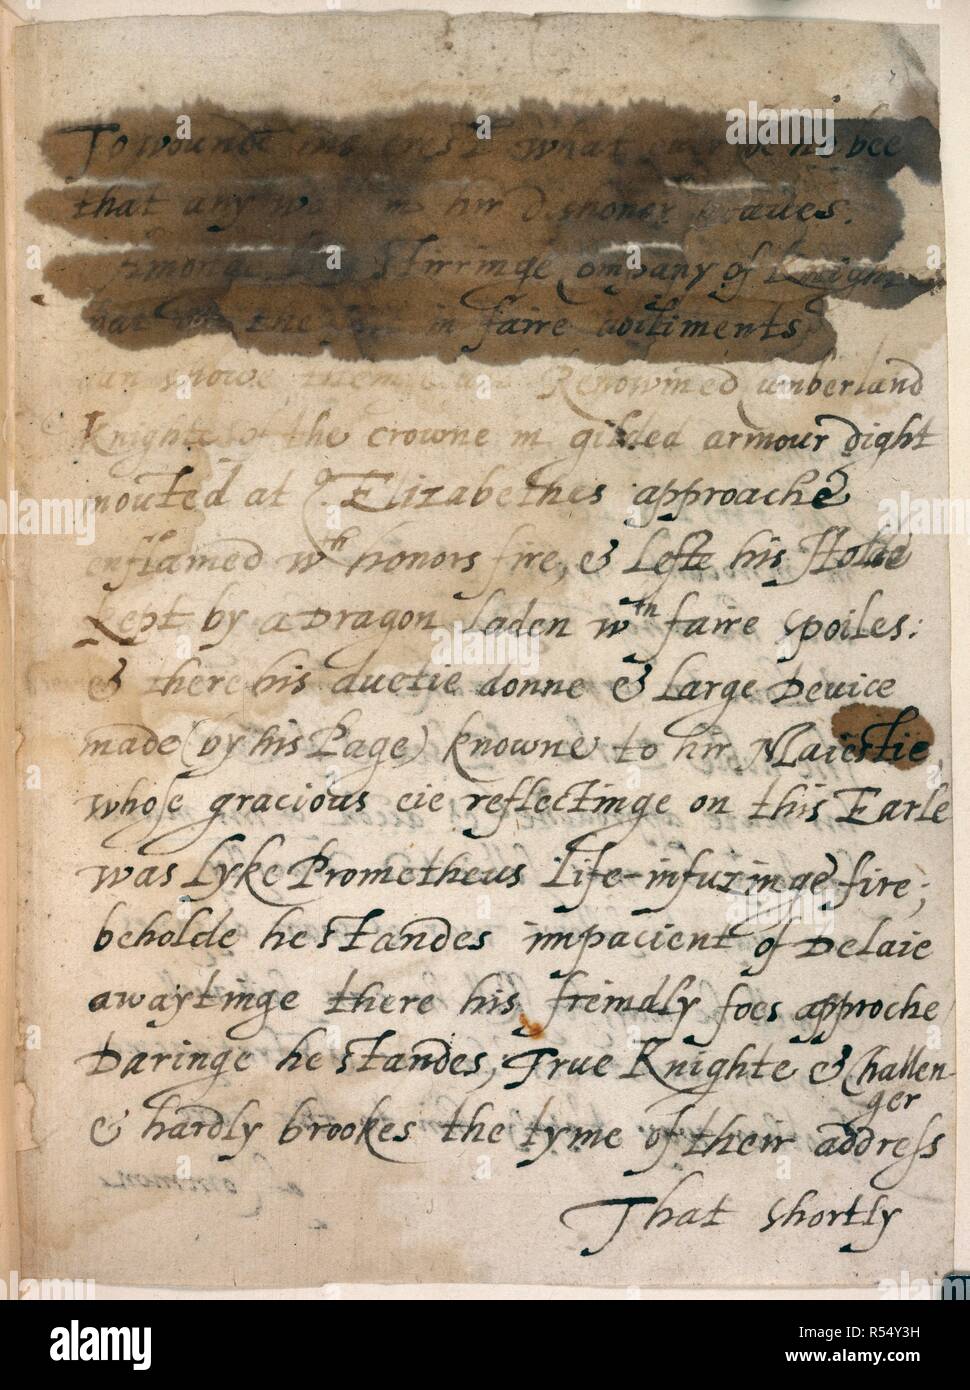 To wounde his crest what ever he bee
that any way in hir dishonor braves.
Amonge this stirringe Company of Knights
That in faire abiliments
Can showe them Renowmed umberland
Knighte of the crowne in gilded armour dight
mouted at Elizabethes approache
enflamed wth honors fire, & Lefte his Holde
kept by a Dragon laden wth faire spoiles:
& there his duetie donne & large Device
made (by his Page) knowne to hir Maiestie,
whose gracious eie reflectinge on this Earle
was lyke Prometheus life-infuzinge fire;
beholde he standes impacient of Delaie
awaytinge there his freindly foes approche
Daringe he standes, True Knighte & Challen-
ger
& hardly brookes the tyme of their address
That shortly
alamy
Image ID: R54Y3H
www.alamy.com